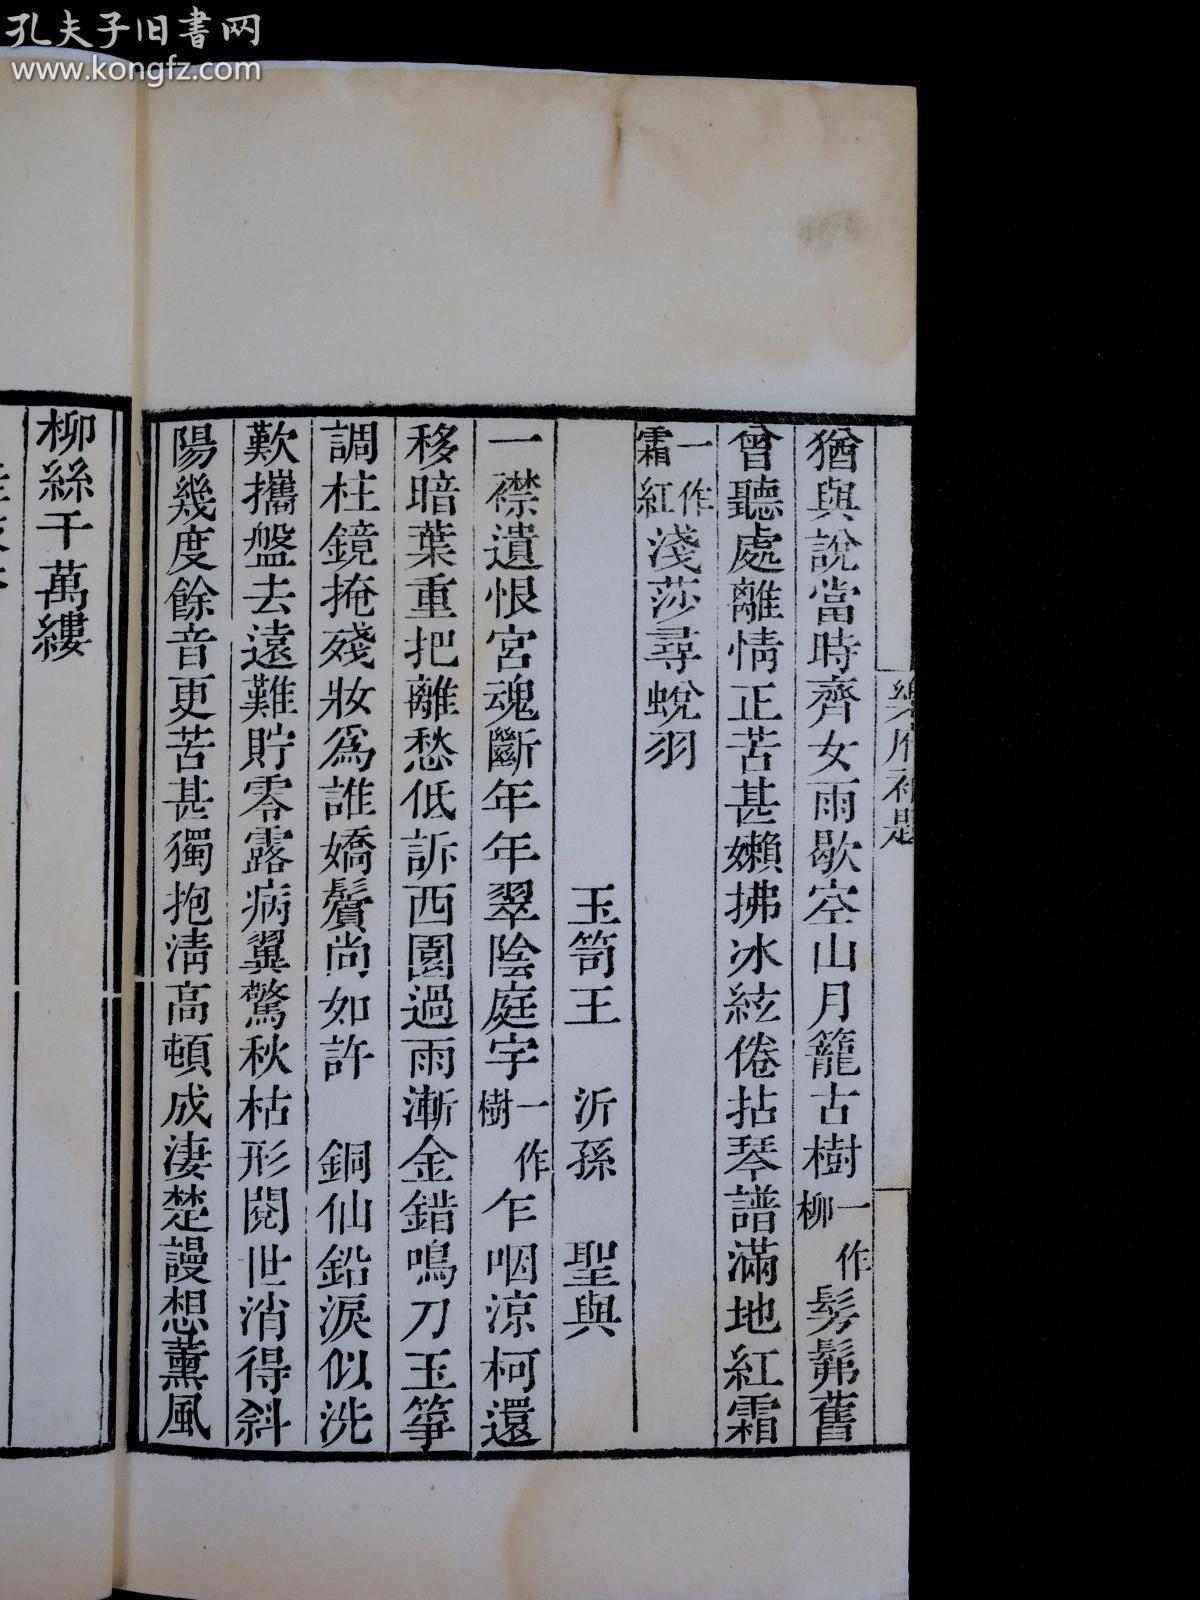 孔夫子旧书网
www.kongfz.com
樂府補題
猶與說當時齊女雨歇空山月籠古樹一作柳髣髴舊
曾聽處離情正苦甚嬾拂冰絃倦拈琴譜滿地紅霜
一作霜紅淺莎尋蛻羽
玉笥王 沂孫 聖與
一襟遺恨宮魂斷年年翠陰庭宇一作樹乍咽涼柯還
移暗葉重把離愁低訴西園過雨漸金錯鳴刀玉箏
調柱鏡掩殘妝爲誰嬌鬢尚如許 銅仙鉛淚似洗
歎攜盤去遠難貯零露病翼驚秋枯形閱世消得斜
陽幾度餘音更苦甚獨抱淸高頓成淒楚謾想薰風
柳絲千萬縷